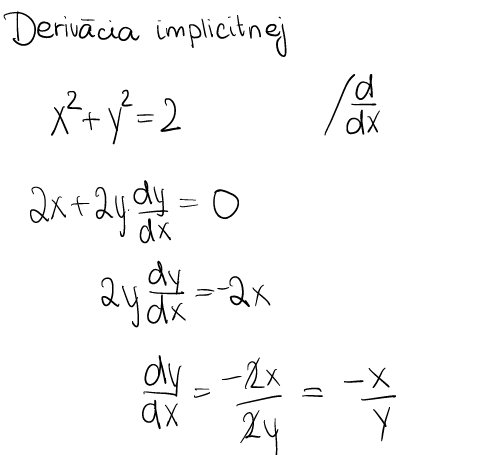 Derivācia implicitnej
x² + y² = 2 / d/dx
2x + 2y · dy/dx = 0
2y dy/dx = -2x
dy/dx = -2x/2y = -x/y